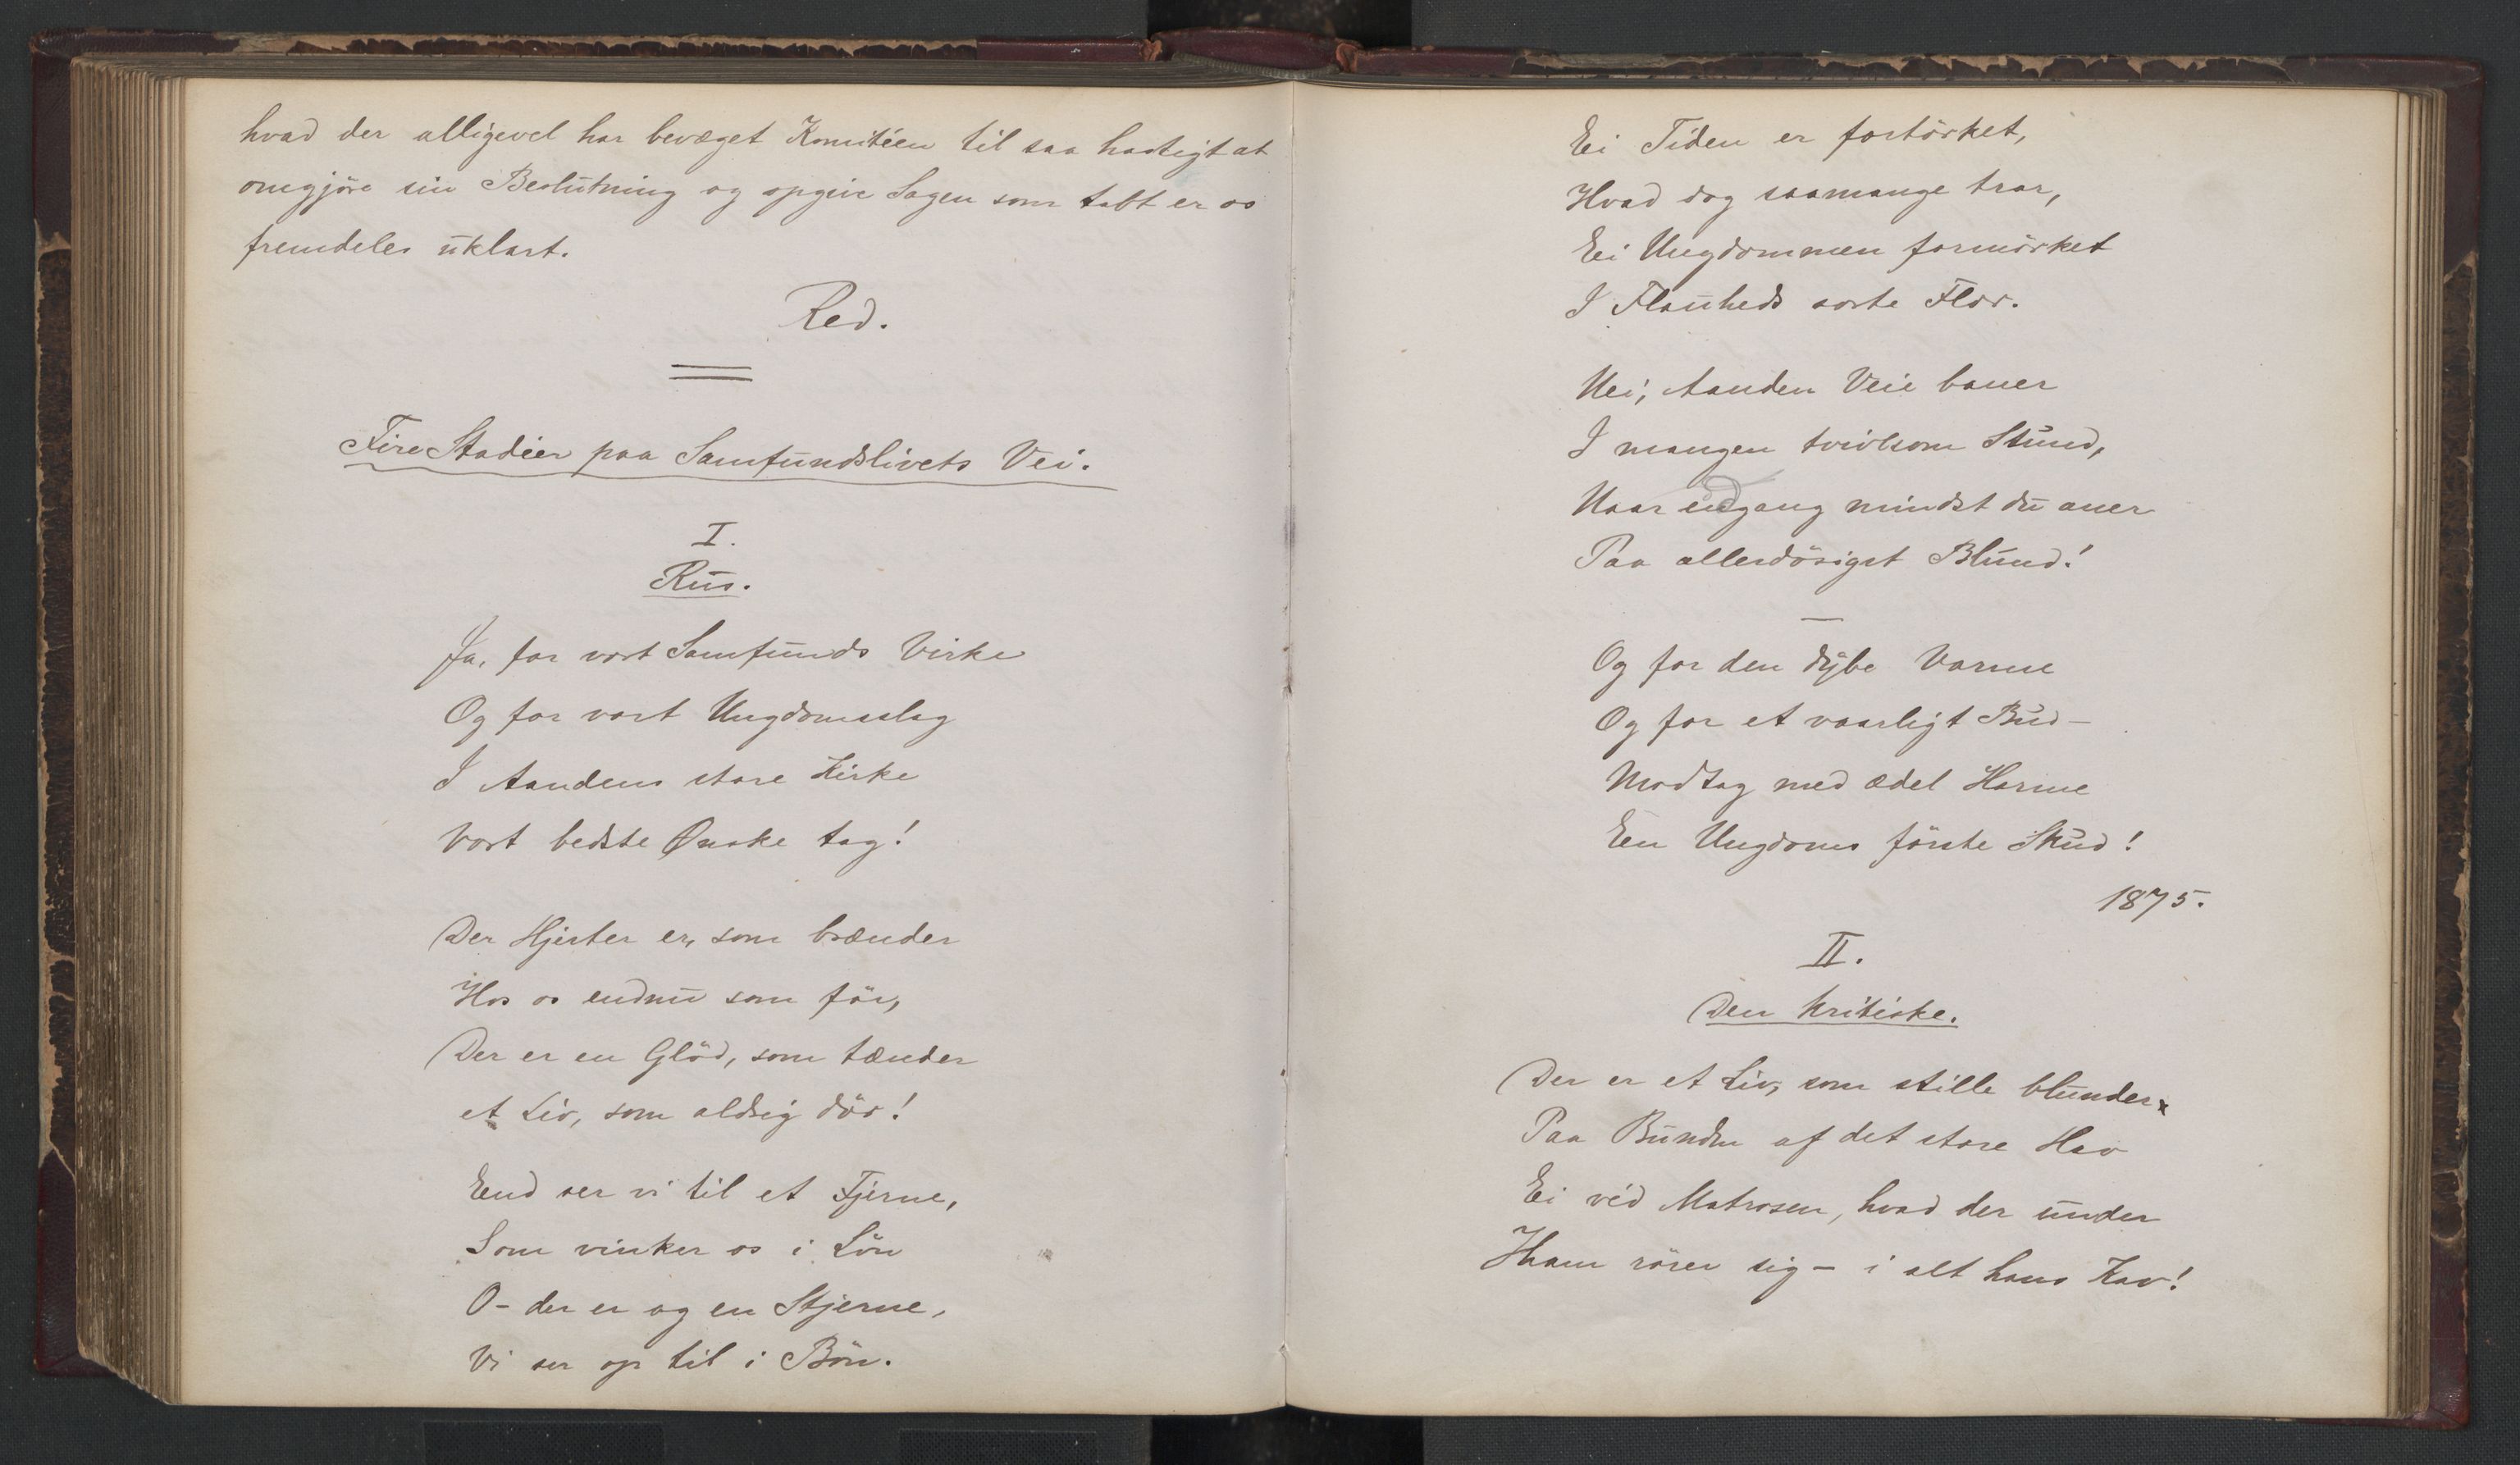 hvad der alligevel har bevæget Komitéen til saa hastigt at
omgjöre sin Beslutning og opgive Sagen som tabt er os
fremdeles uklart.
Red.
Fire Stadier paa Samfundslivets Vei.
I.
Rus.
Ja, for vort Samfunds Virke
Og for vort Ungdomsslag
I Aandens store Kirke
Vort bedste Ønske tag!
Der Hjerter er, som brænder
Hos os endnu som för,
Der er en Glöd, som tænder
et Liv, som aldrig dör!
End ser vi til et Fjerne,
Som vinker os i Lön
O- der er og en Stjerne,
Vi ser op til i Bön.
Ei Tiden er fortörket,
Hvad dog saamange tror,
Ei Ungdommen formörket
I Flauheds sorte Flor.
Nei, Aanden Veie baner
I mangen tvivlsom Stund,
Naar engang mindst du aner
Paa allerdösigst Blund!
Og for den dybe Varme
Og for et vaarligt Bud-
Modtag med ædel Harme
En Ungdoms förste Skud!
1875.
II.
Den kritiske.
Der er et Liv, som stille blunder
Paa Bunden af det store Hav
Ei véd Matrosen, hvad der under
Ham rörer sig - i alt hans Kav!